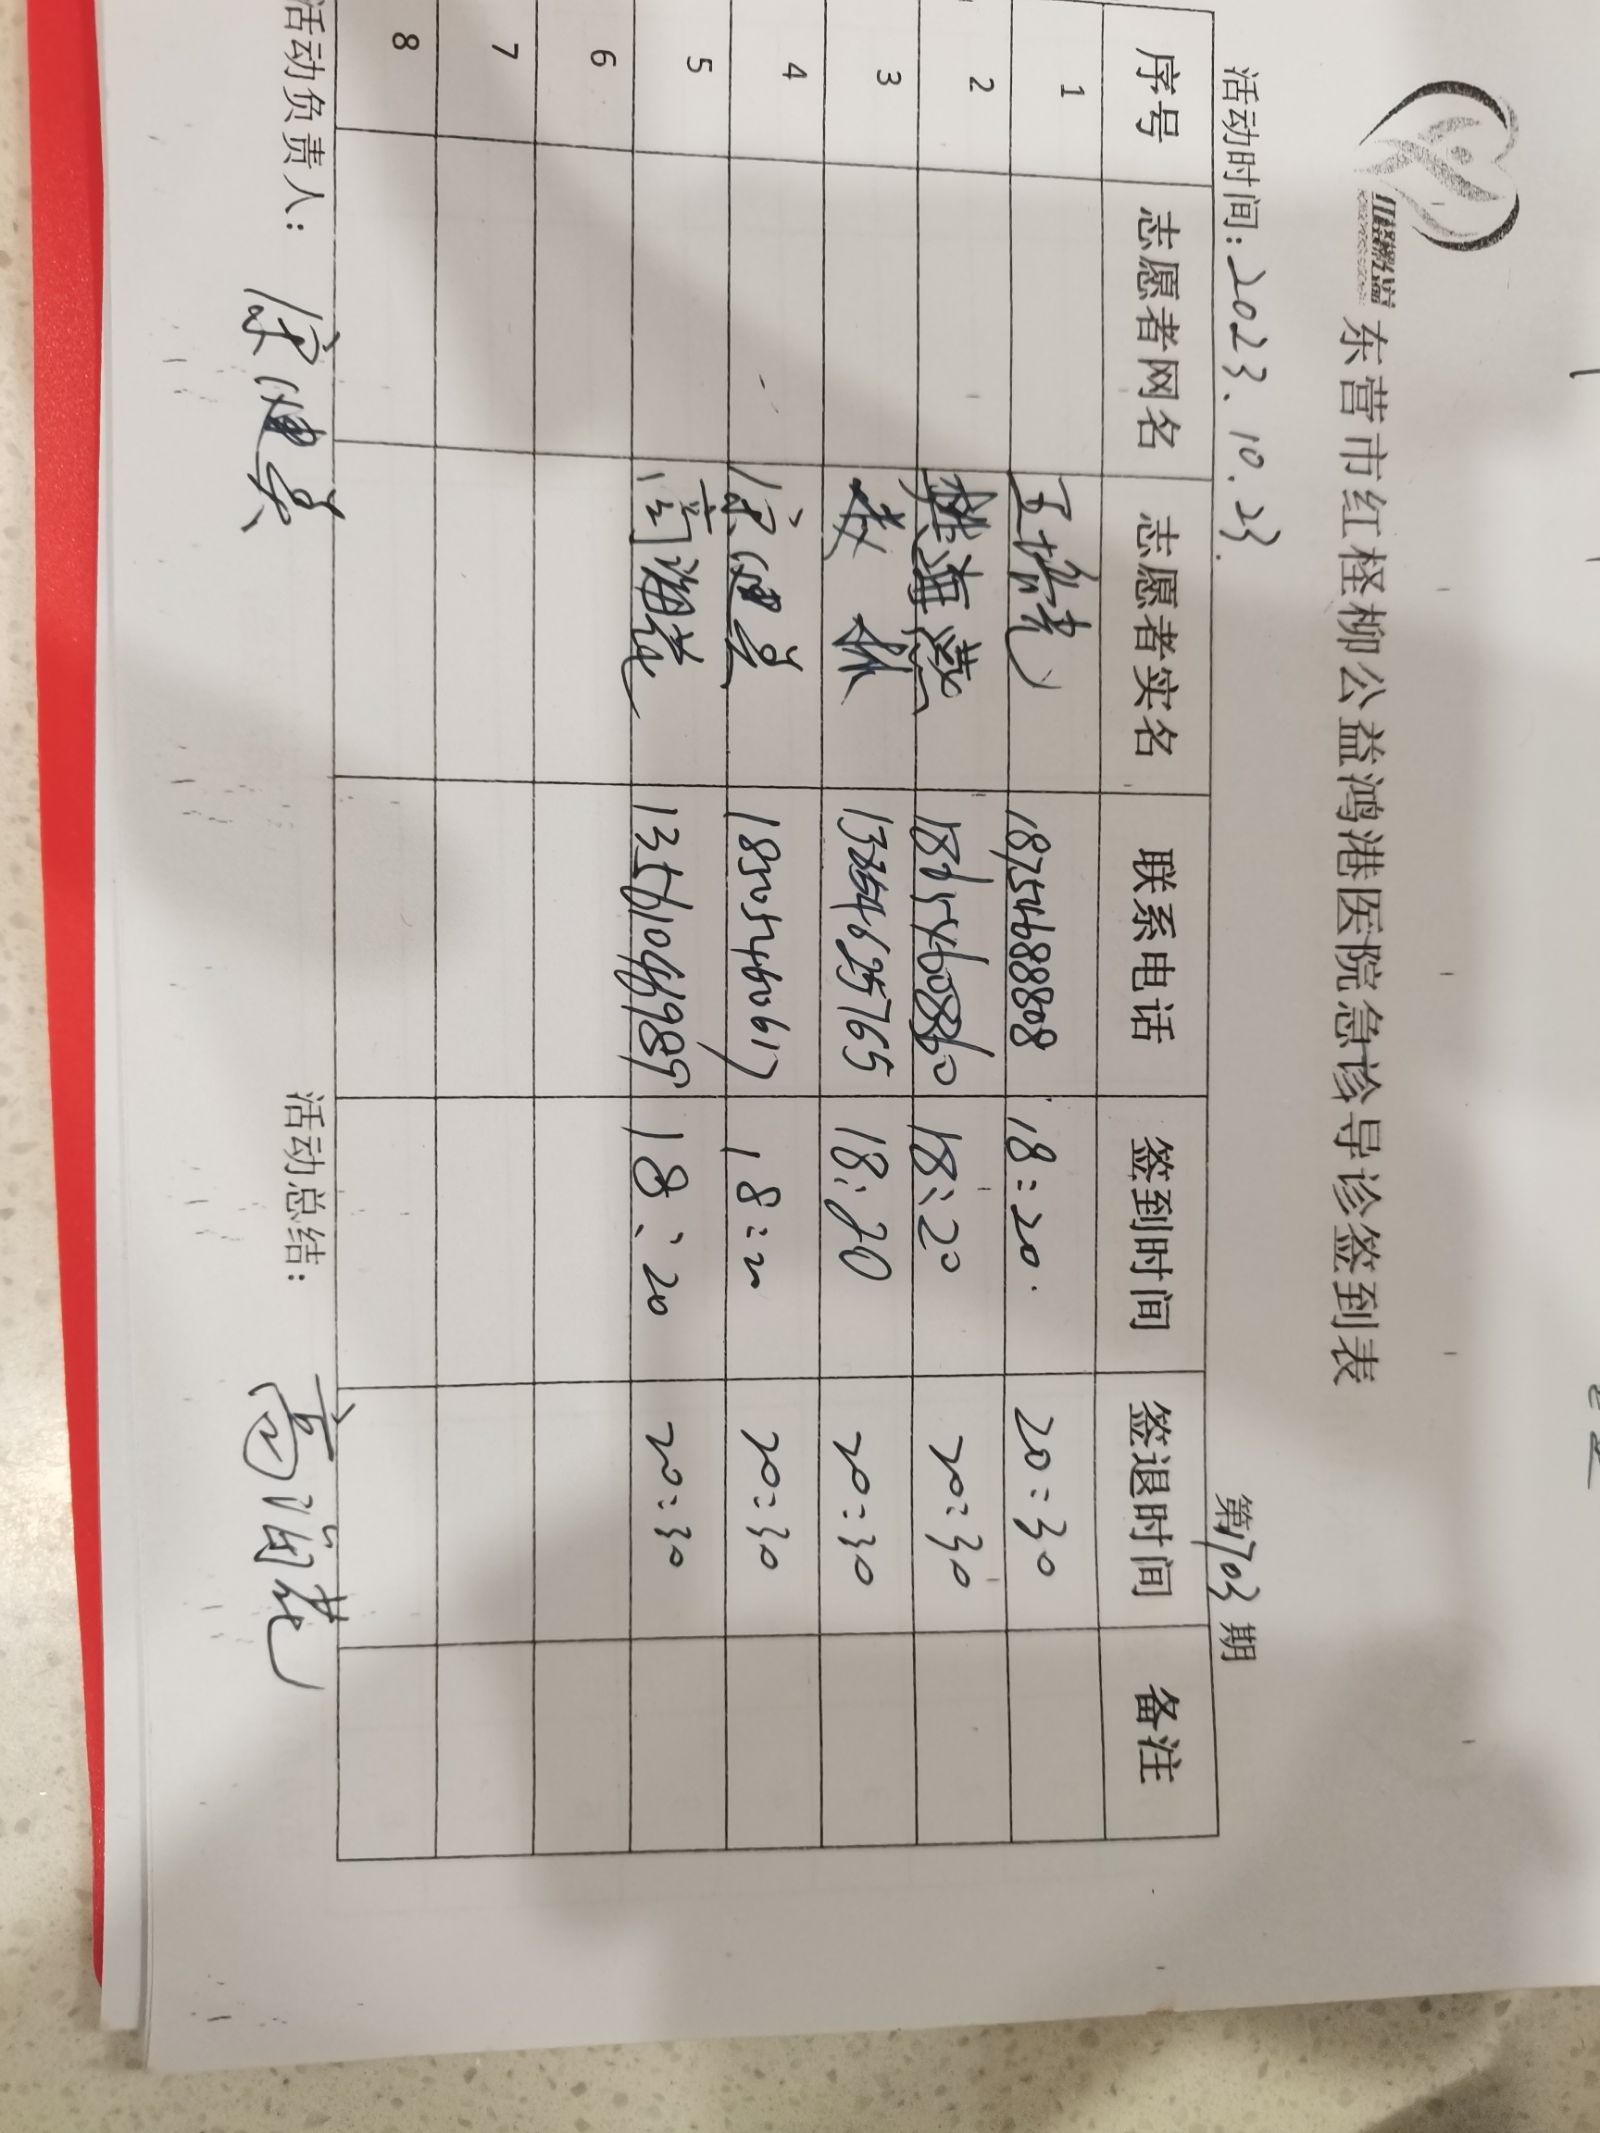 红柽柳公益
东营市红柽柳公益鸿港医院急诊导诊签到表
活动时间：2023.10.23. 第1703期
序号 志愿者网名 志愿者实名 联系电话 签到时间 签退时间 备注
1 王培亮 18754688808 18:20. 20:30
2 海燕 18:20 20:30
3 18:20 20:30
4 18505460617 18:20 20:30
5 高海花 18:20 20:30
6
7
8
活动负责人： 活动总结： 高海花